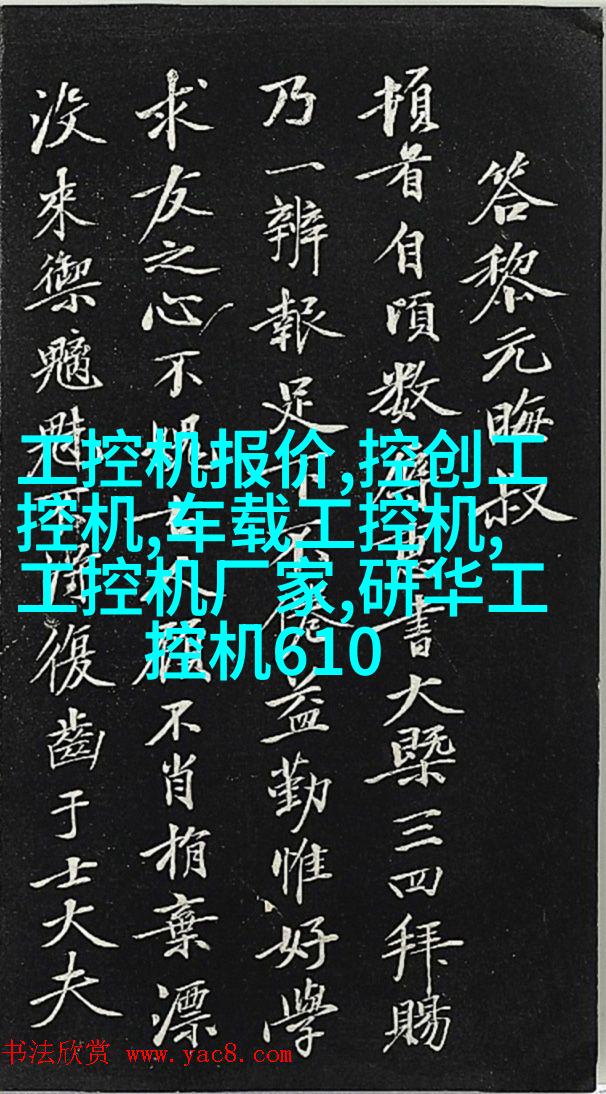 答黎元晦叔
頓首自頃数書大槩三四拜賜
乃一辨報足下不倦益勤惟好學
求友之心不愧人不肖捐棄漂
没來禦魑魅復齒于士大夫
工控机报价,控创工
控机,车载工控机,
工控机厂家,研华工
控机610
书法欣赏 www.yac8.com